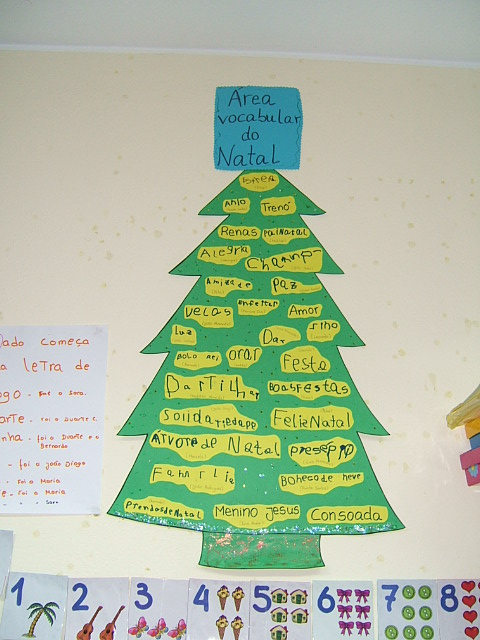 Área
vocabular
do
Natal
Anjo Trenó
Renas Pai Natal
Alegria Champ-
Amizade Paz
Velas Enfeitar Amor
Luz Dar sino
Bolo Rei orar Festa
Partilhar Boas festas
Solidariedade Feliz Natal
Árvore de Natal presépio
Família Boneco de neve
Prendas de Natal Menino Jesus Consoada
lado começa
a letra de
go - foi a Sara.
arte - foi o Duarte E.
nha - foi o Duarte e o
Bernardo
- foi o João Diogo
- foi a Maria
e - foi a Maria
Sara
1 2 3 4 5 6 7 8